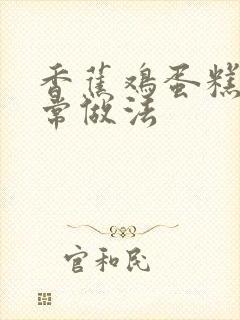 香蕉鸡蛋糕
常做法
官和民